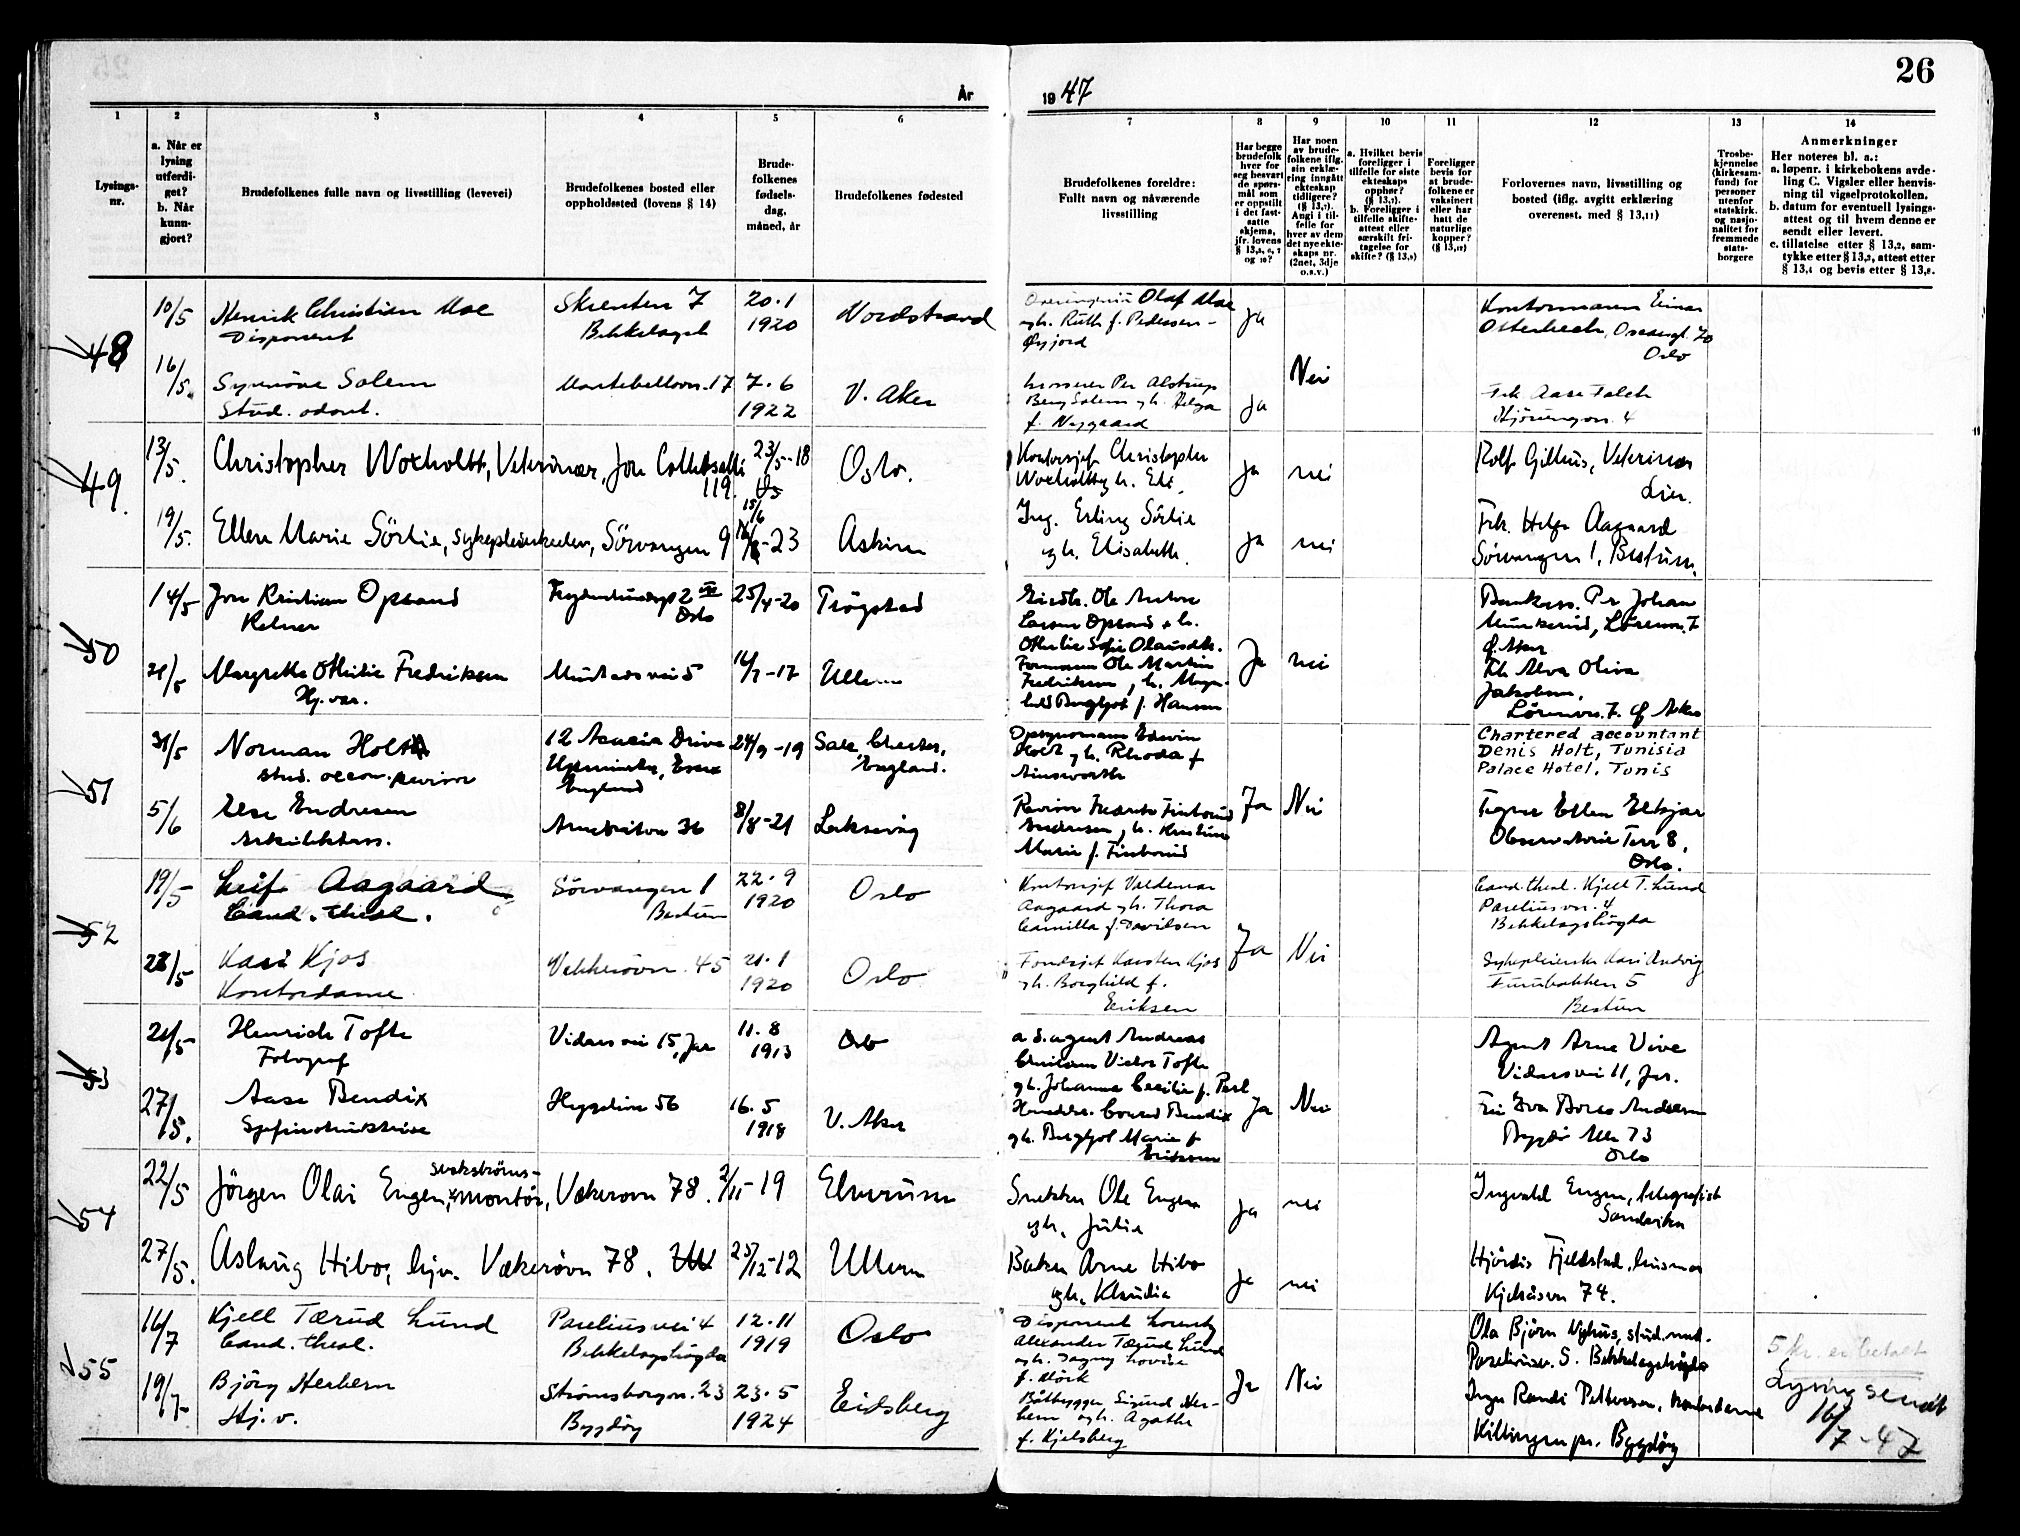 26
År
19 47
1
2
3
4
5
6
7
8
9
10
11
12
13
14
Lysings-
nr.
a. Når er
lysing
utferdi-
get?
b. Når
kunn-
gjort?
Brudefolkenes fulle navn og livsstilling (levevei)
Brudefolkenes bosted eller
oppholdssted (lovens § 14)
Brude-
folkenes
fødsels-
dag,
måned, år
Brudefolkenes fødested
Brudefolkenes foreldre:
Fullt navn og nåværende
livsstilling
Har begge
brudefolk
hver for
seg besvart
de spørs-
mål som
er oppstilt
i det fast-
satte
skjema,
jfr. lovens
Har noen
av brude-
folkene iflg.
sin erklæ-
ring inngått
ekteskap
tidligere?
(§ 13,7).
Angi i til-
felle for
hver av dem
det nye ekte-
skaps nr.
(2net, 3dje
o.s.v.)
a. Hvilket bevis
foreligger i
tilfelle for siste
ekteskaps
opphør?
(§ 13,7).
b. Foreligger i
tilfelle skifte-
attest eller
særskilt fri-
tagelse for
skifte? (§ 13,9)
Foreligger
bevis for
at brude-
folkene er
vaksinert
eller har
hatt de
naturlige
kopper?
Forlovernes navn, livsstilling og
bosted (iflg. avgitt erklæring
overenst. med § 13,11)
Trosbe-
kjennelse
(kirkesam-
fund) for
personer
utenfor
statskirk.
og nasjo-
nalitet for
fremmede
stats-
borgere
Anmerkninger
Her noteres bl. a.:
a. løpenr. i kirkebokens avde-
ling C. Vigsler eller henvis-
ning til vigselprotokollen.
b. datum for eventuell lysings-
attest og til hvem denne er
sendt eller levert.
c. tillatelse etter § 13,2, sam-
tykke etter § 13,3, attest etter
§ 13,4 og bevis etter § 13,8.
48
10/5
Henrik Christian Moe
Disponent
Skrenten 7
Bekkelaget
20.1
1920
Nordstrand
Olaf Moe
Ruth f. Pedersen-
Ja
Kontormann Einar
Oslo
16/5.
Synnöve Solem
Stud. odont.
Montebellovn. 17
7.6
1922
V. Aker
Grosserer Per Alstrup
Berg Solem gh. Helga
f. Nygaard
Ja
Nei
Frk Aase Falch
49.
13/5.
Christopher Woxholtt, Veterinær, Jon Collettsallé
119.
23/5-18
Oslo.
Kontorsjef Christopher
Woxholtt gh. Edi
Ja
nei
Rolf Gillius, Veterinær
Lier.
19/5.
Ellen Marie Sörlie, sykepleierske, Sörvangen 9
15/6-23
Askim
Ing. Erling Sörlie
gh. Elisabeth
Ja
nei
Frk. Helga Aagaard
Sörvangen 1, Bestum.
50
14/5
Jon Kristian Opsand
Kelner
Oslo
25/4-20
Trögstad
Larsen Opsand
Othilie Sofie
Ja
nei
Bankass. Per Johan
Munkerud, Lörenvn. 7
Ø. Aker
21/5
Margrethe Othilie Fredriksen
Hj. vær.
Mustads vei 5
16/7-17
Ullern
Formann Ole Martin
Fredriksen
Bergljot f. Hansen
Frk Alva Oliva
Jakobsen,
Lörenvn. 7. Ø Aker
51
31/5
Norman Holt
stud. oecon. revisor
12 Acacia Drive
Upminster, Essex
England
24/9-19
Sale, Chester,
England.
Edwin
Holt gh. Rhoda f
Ainsworth
Chartered accountant
Denis Holt, Tunisia
Palace Hotel, Tunis
5/6
Else Endresen
Arkitektass.
36
8/8-21
Laksevåg
Revisor Fredrik
Endresen, gh. Kristine
Marie f.
Ja
Nei
Tegner Ellen Eltsjar
Observatorie Terr 8,
Oslo.
52
19/5
Leif Aagaard
Cand. theol.
Sörvangen 1
Bestum
22.9
1920
Oslo
Kontorsjef Valdemar
Aagaard gh. Thora
Camilla f. Davidsen
Cand. theol. Kjell T. Lund
Pareliusvn. 4
Bekkelagshögda
28/5
Kari Kjos
Kontordame
Vekkerövn. 45
21.1
1920
Oslo
Fondsjef Karsten Kjos
gh. Borghild f.
Eriksen
Ja
Nei
Sykepleierske Kari Ludvig
Furubakken 5
Bestum
53
21/5
Henrich Tofte
Fotograf
Vidars vei 15, Jar
11.8
1913
Oslo
a.s. agent Andreas
Victor Tofte
gh. Johanne Cecilie f.
Agent Arne Vive
Vidarsvei 11, Jar.
27/5.
Aase Bendix
56
16.5
1918
V. Aker
Conrad Bendix
gh. Bergljot Marie f
Eriksen
Ja
Nei
Eva Andersen
Bygdö Alle 73
Oslo
54
22/5
Jörgen Olai Engen,
svakströms-
montör, Vækerövn 78.
2/11-19
Elverum
Snekker Ole Engen
gh. Julia
Ja
nei
Ingvald Engen, telegrafist
Sandvika
27/5.
Aslaug Hibo, hjv. Vækerövn 78.
25/12-12
Ullern
Baker Arne Hibo
gh. Klaudia
Ja
nei
Hjördis Fjeldstad, husmor
Kjelsåsvn 74.
55
16/7
Kjell Tærud Lund
Cand. theol.
Pareliusvei 4
Bekkelagshögda
12.11
1919
Oslo
Disponent Lorentz
Alexander Tærud Lund
gh. Dagny Lovise
f. Mörk
Ola Björn Nyhus, stud. med.
Pareliusvn. 5. Bekkelagshögda
5 kr. er betalt
19/7
Björg Herbern
Hj. v.
Strömsborgvn. 23
Bygdöy
23.5
1924
Eidsberg
Båtbygger Sigurd Her-
bern gh. Agathe
f. Kjelsberg
Ja
Nei
Inger Randi Pettersen, kontordame
Killingen pr. Bygdöy
Lysing sendt
16/7-47